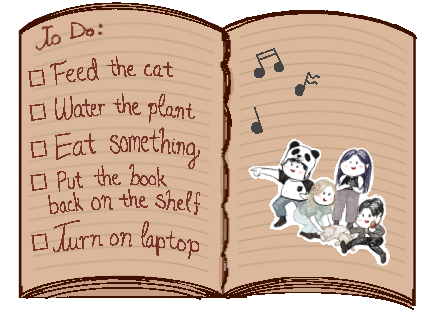 To Do:
Feed the cat
Water the plant
Eat something
Put the book
back on the shelf
Turn on laptop